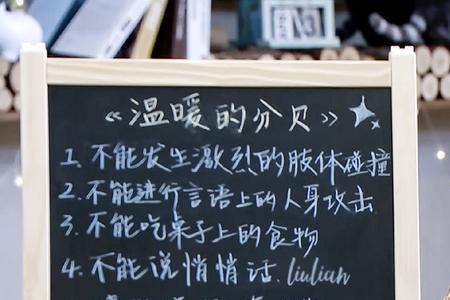 《温暖的分贝》
1. 不能发生激烈的肢体碰撞
2. 不能进行言语上的人身攻击
3. 不能吃桌子上的食物
4. 不能说悄悄话. liulian